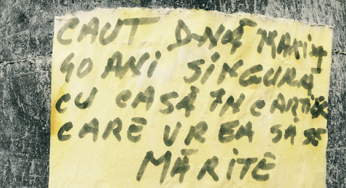 CAUT D-NĂ MAXIM
40 ANI SINGURĂ
CU CASĂ ÎN CARTIER
CARE VREA SĂ SE
MĂRITE